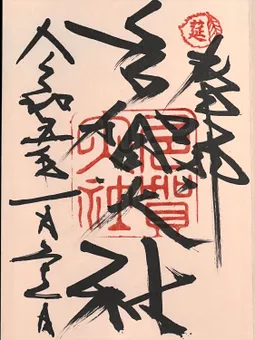 奉拝
多賀大社
令和五年一月日
莚
多賀大社